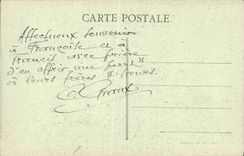 CARTE POSTALE
Affectueux souvenir
à Françoise et à
Francis avec prière
d'en offrir une part
à leurs frères &